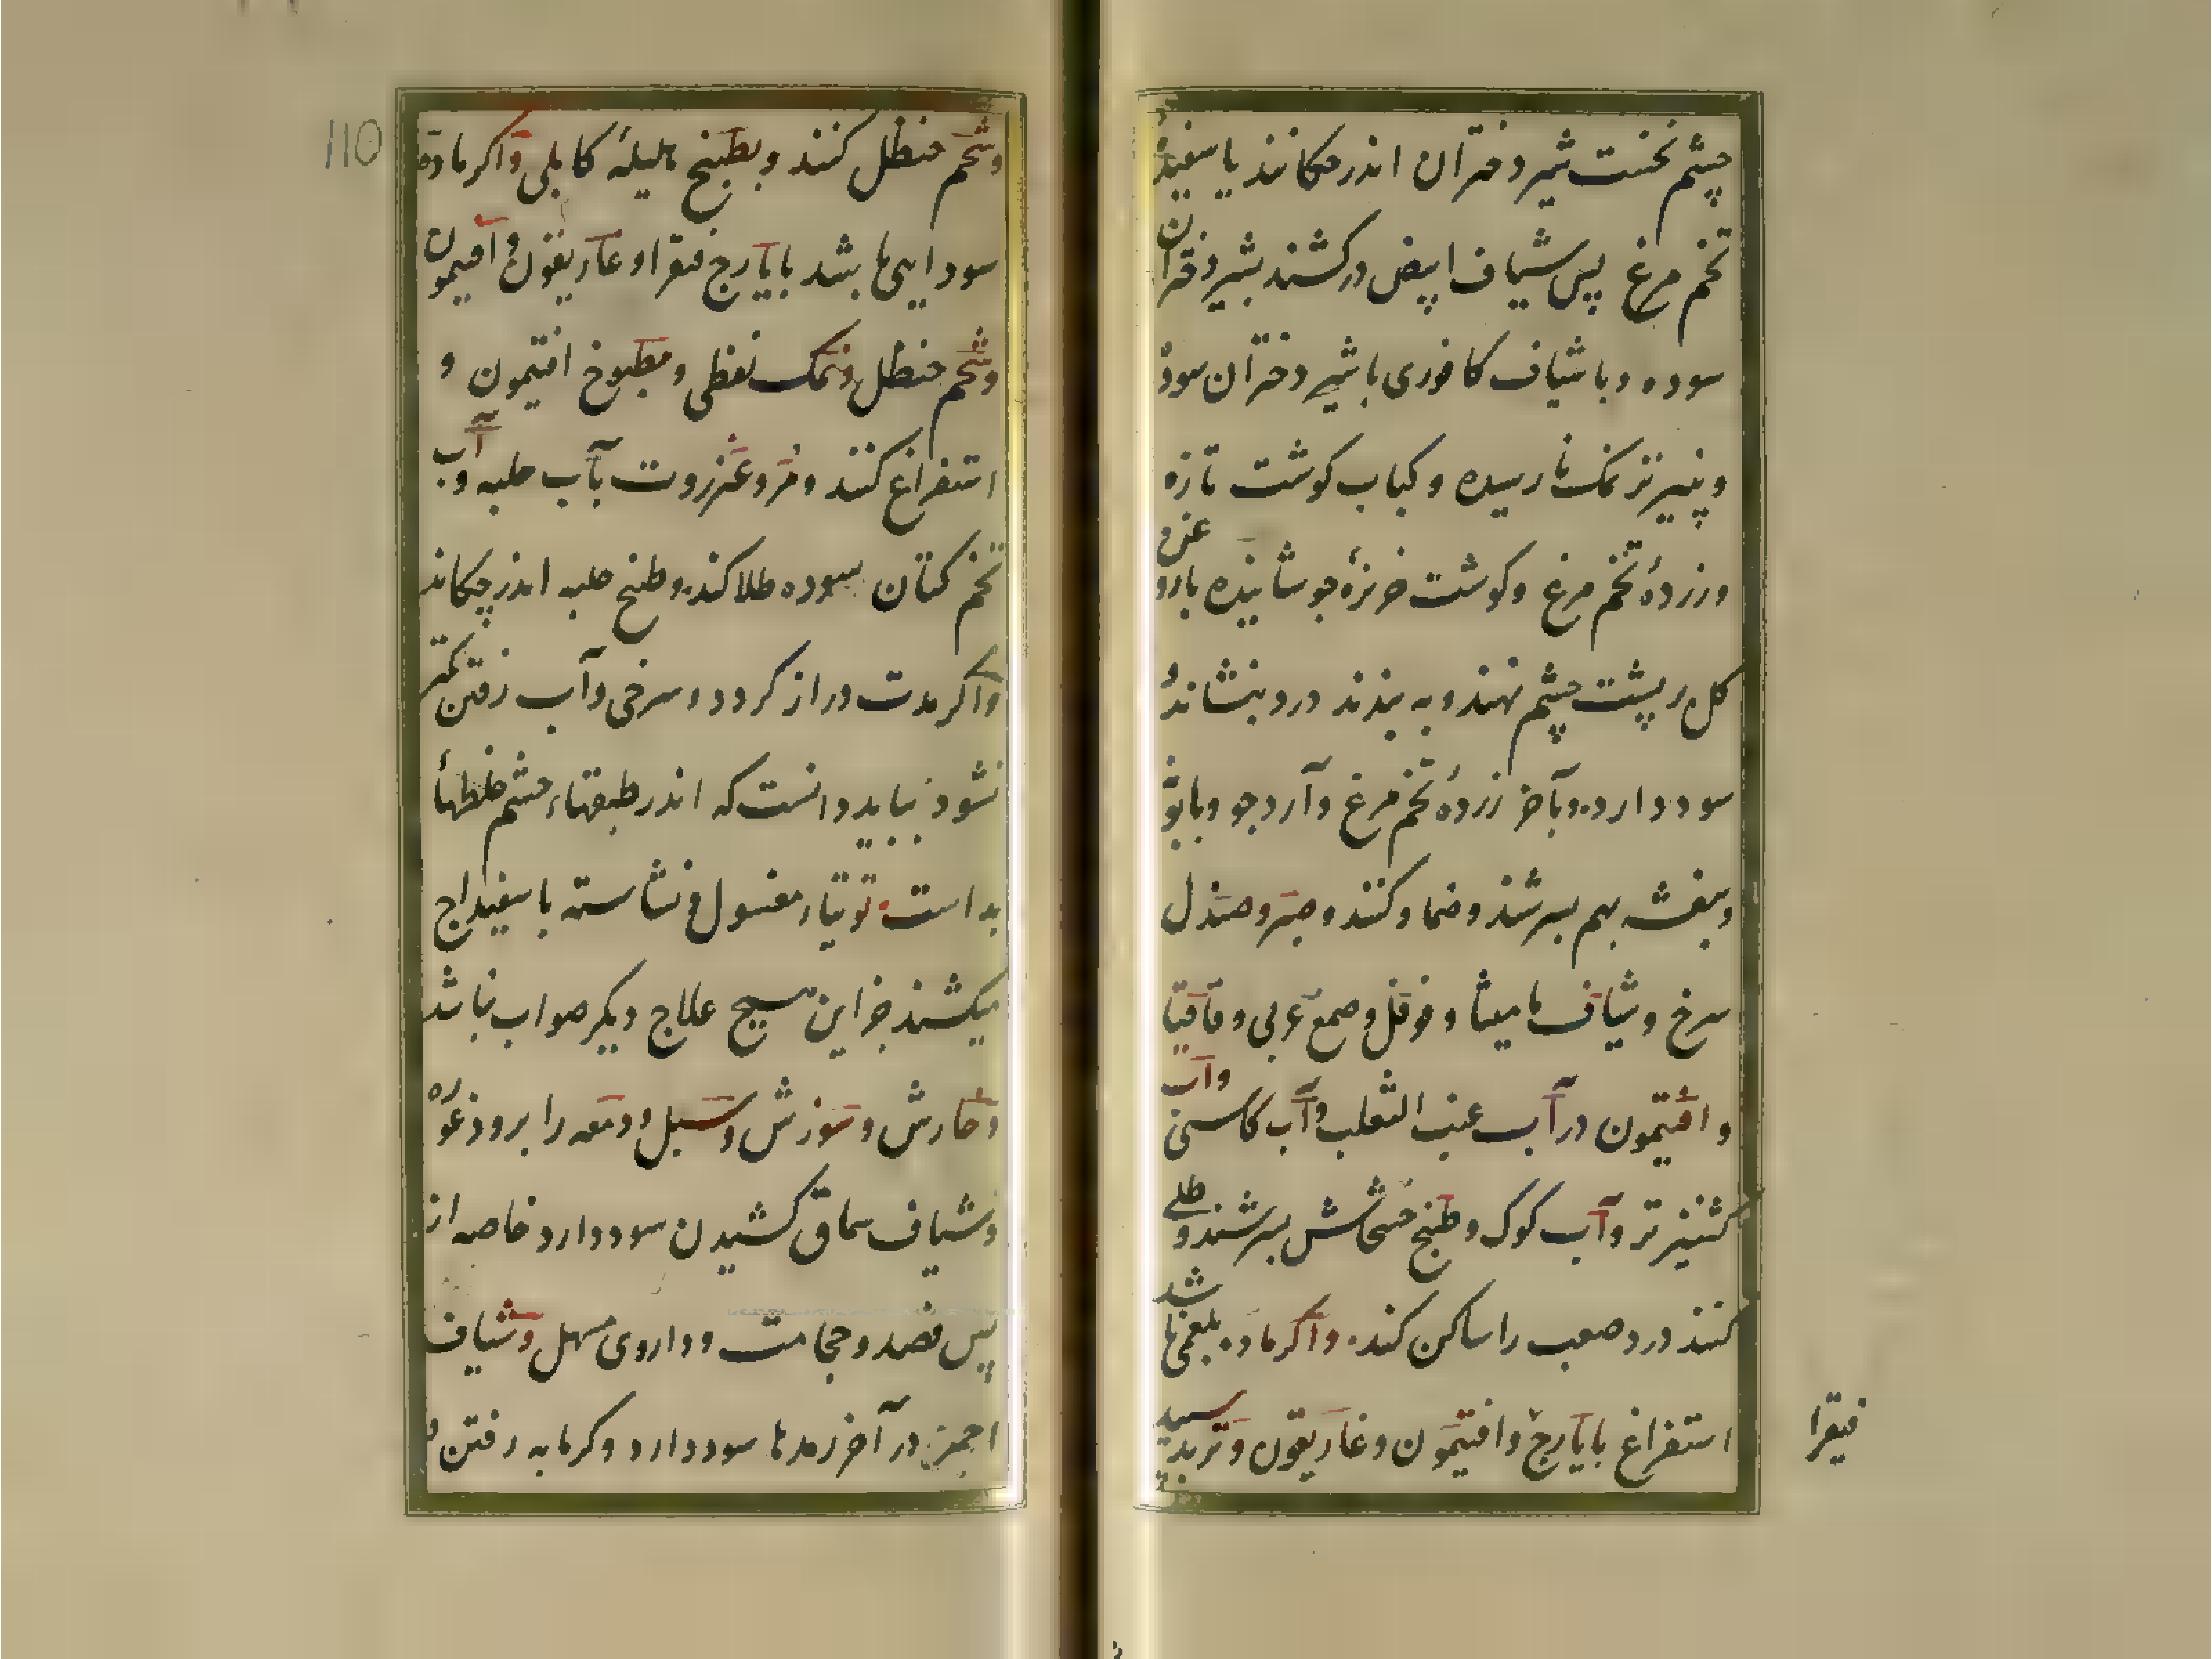 چشم نخست شیر دختران اندر چکانند یا سفیده
تخم مرغ پس شیاف ابیض درکشند بشیر دختران
سوده و با شیاف کافوری با شیر دختران سوده
و پنیر تر نمک نارسیده و کباب کوشت تازه
و زردهٔ تخم مرغ و کوشت خربزهٔ جوشانیده با روغن
کل بر پشت چشم نهند و به بندند درد بنشاند و
سود دارد و بآخر زردهٔ تخم مرغ و آرد جو و بابونه
و بنفشه بهم بسرشند و ضماد کنند و صبر و صندل
سرخ و شیاف مامیثا و فوفل و صمغ عربی و قاقیا
و افیمون در آب عنب الثعلب و آب کاسنی و آب
کشنیز تر و آب کوک و طبخ خشخاش بسرشند و طلی
کنند درد صعب را ساکن کند. و اکر ماده بلغمی باشد
استفراغ بایارج و افتیمون و غاریقون و تربد سپید
فیقرا
110
و شحم حنظل کنند و بطبیخ هلیلهٔ کابلی و اکر ماده
سودایی باشد بایارج فیقرا و غاریقون و افیمون
و شحم حنظل و نمک نفطی و مطبوخ افتیمون و
استفراغ کنند و مر و عنزروت بآب حلبه و بآب
تخم کتان سوده طلا کند. و طبخ حلبه اندر چکاند
و اکر مدت دراز کردد و سرخی و آب رفتن کمتر
نشود بباید دانست که اندر طبقهاء چشم خلطهاء
بد است. توتیاء مغسول و نشاسته با سفیداج
میکشند جز این هیچ علاج دیکر صواب نباشد
و خارش و سوزش و سبل و دمعه را برود غوره
و شیاف سماق کشیدن سود دارد خاصه از
پس فصد و حجامت و داروی مسهل و شیاف
احمر در آخر رمدها سود دارد و کرمابه رفتن و